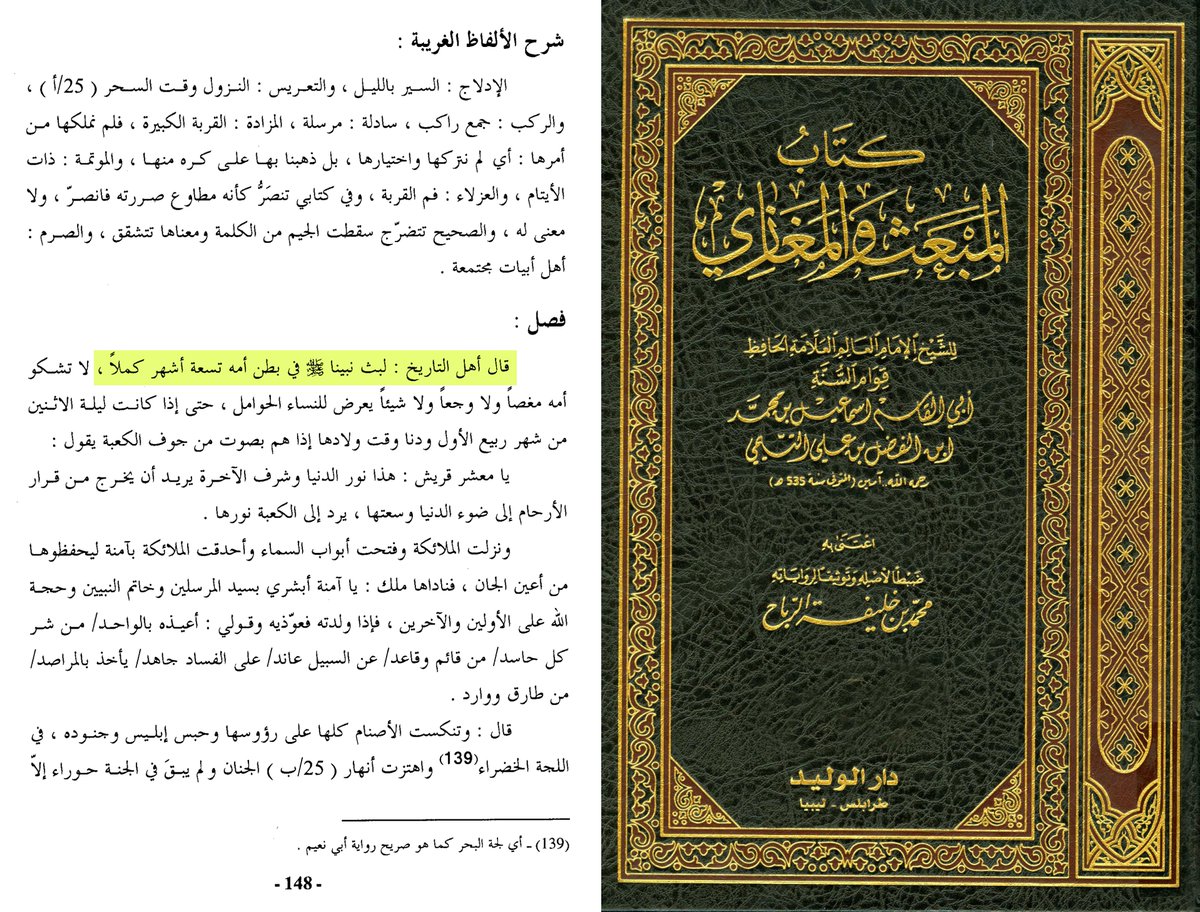 شرح الألفاظ الغريبة :
الإدلاج : السير بالليل ، والتعريس : النزول وقت السحر ( 25/أ ) ،
والركب : جمع راكب ، سادلة : مرسلة ، المزادة : القربة الكبيرة ، فلم نملكها من
أمرها : أي لم نتركها واختيارها ، بل ذهبنا بها على كره منها ، والموتمة : ذات
الأيتام ، والعزلاء : فم القربة ، وفي كتابي تنصَرُّ كأنه مطاوع صررته فانصرّ ، ولا
معنى له ، والصحيح تتضرّج سقطت الجيم من الكلمة ومعناها تتشقق ، والصرم :
أهل أبيات مجتمعة .
فصل :
قال أهل التاريخ : لبث نبينا ﷺ في بطن أمه تسعة أشهر كملاً ، لا تشكو
أمه مغصاً ولا وجعاً ولا شيئاً يعرض للنساء الحوامل ، حتى إذا كانت ليلة الاثنين
من شهر ربيع الأول ودنا وقت ولادها إذا هم بصوت من جوف الكعبة يقول :
يا معشر قريش : هذا نور الدنيا وشرف الآخرة يريد أن يخرج من قرار
الأرحام إلى ضوء الدنيا وسعتها ، يرد إلى الكعبة نورها .
ونزلت الملائكة وفتحت أبواب السماء وأحدقت الملائكة بآمنة ليحفظوها
من أعين الجان ، فناداها ملك : يا آمنة أبشري بسيد المرسلين وخاتم النبيين وحجة
الله على الأولين والآخرين ، فإذا ولدته فعوّذيه وقولي : أعيذه بالواحد/ من شر
كل حاسد/ من قائم وقاعد/ عن السبيل عاند/ على الفساد جاهد/ يأخذ بالمراصد/
من طارق ووارد .
قال : وتنكست الأصنام كلها على رؤوسها وحبس إبليس وجنوده ، في
اللجة الخضراء(139) واهتزت أنهار ( 25/ب ) الجنان ولم يبقَ في الجنة حوراء إلاّ
(139) ـ أي لجة البحر كما هو صريح رواية أبي نعيم .
- 148 -
كتاب
المبعث والمغازي
للشيخ الإمام العالم العلامة الحافظ
قوام السنة
أبي القاسم اسماعيل بن محمد
ابن الفضل بن علي التيمي
رحمه الله آمين (المتوفى سنة 535 هـ)
اعتنى به
ضبطا لأصله وتوثيقا لرواياته
محمد بن خليفة الرباح
دار الوليد
طرابلس - ليبيا